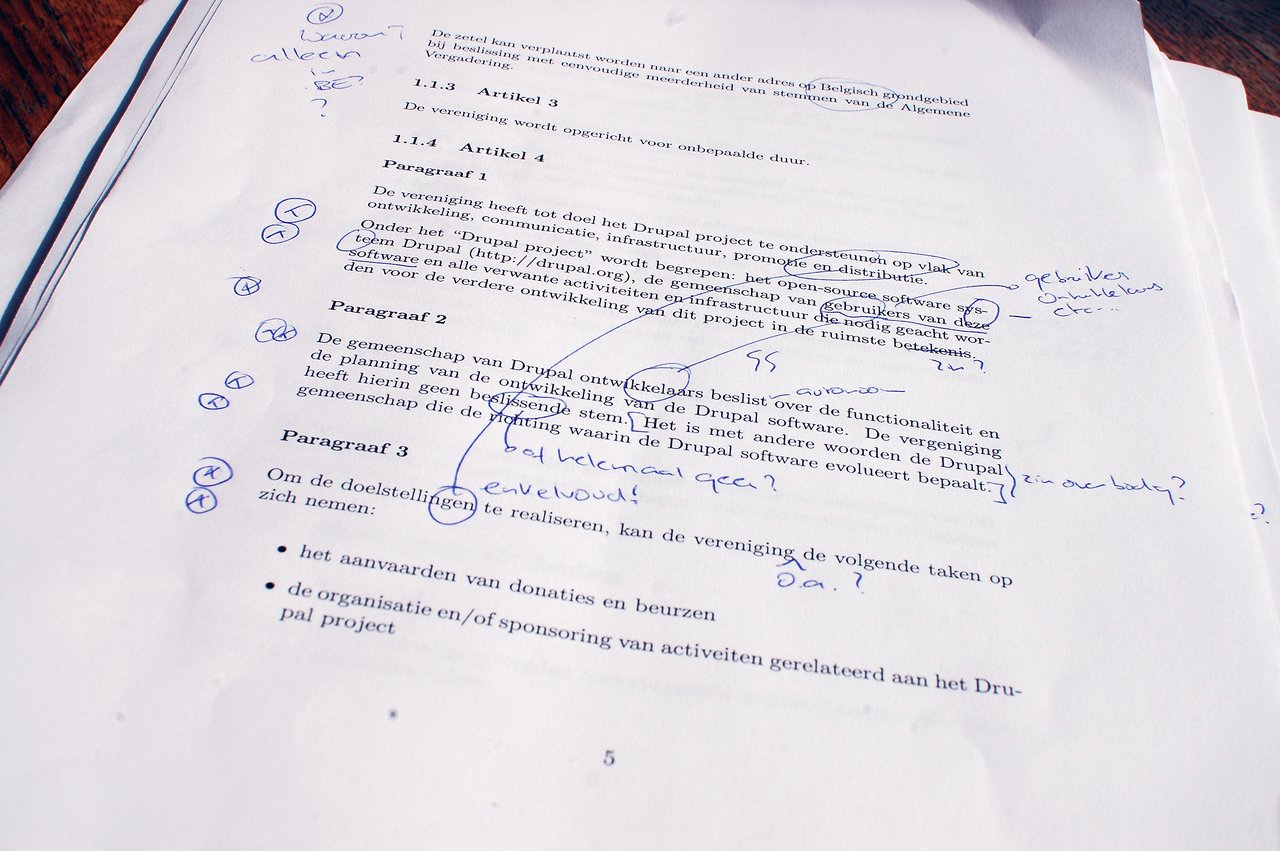 alleen
in
BE?
?
De zetel kan verplaatst worden naar een ander adres op Belgisch grondgebied
bij beslissing met eenvoudige meerderheid van stemmen van de Algemene
Vergadering.
1.1.3 Artikel 3
De vereniging wordt opgericht voor onbepaalde duur.
1.1.4 Artikel 4
Paragraaf 1
De vereniging heeft tot doel het Drupal project te ondersteunen op vlak van
ontwikkeling, communicatie, infrastructuur, promotie en distributie.
Onder het “Drupal project” wordt begrepen: het open-source software sys-
teem Drupal (http://drupal.org), de gemeenschap van gebruikers van deze
software en alle verwante activiteiten en infrastructuur die nodig geacht wor-
den voor de verdere ontwikkeling van dit project in de ruimste betekenis.
gebruikers
ontwikkelaars
etc...
zin?
Paragraaf 2
De gemeenschap van Drupal ontwikkelaars beslist over de functionaliteit en
de planning van de ontwikkeling van de Drupal software. De vergeniging
heeft hierin geen beslissende stem. Het is met andere woorden de Drupal
gemeenschap die de richting waarin de Drupal software evolueert bepaalt.
autonoom
of helemaal geen?
zin overbodig?
enkelvoud!
Paragraaf 3
Om de doelstellingen te realiseren, kan de vereniging de volgende taken op
zich nemen:
o.a.?
• het aanvaarden van donaties en beurzen
• de organisatie en/of sponsoring van activeiten gerelateerd aan het Dru-
pal project
5